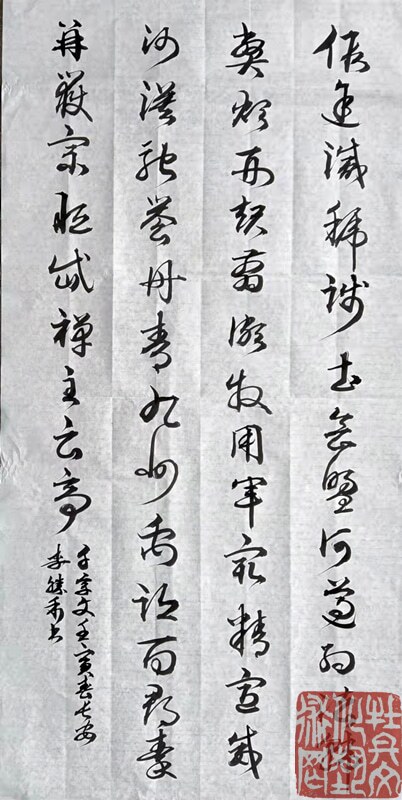 假途滅虢踐土會盟何遵約法韓
弊煩刑起翦頗牧用軍最精宣威
沙漠馳譽丹青九州禹跡百郡秦
并嶽宗恒岱禪主云亭
千字文壬寅春长安
李勝利书